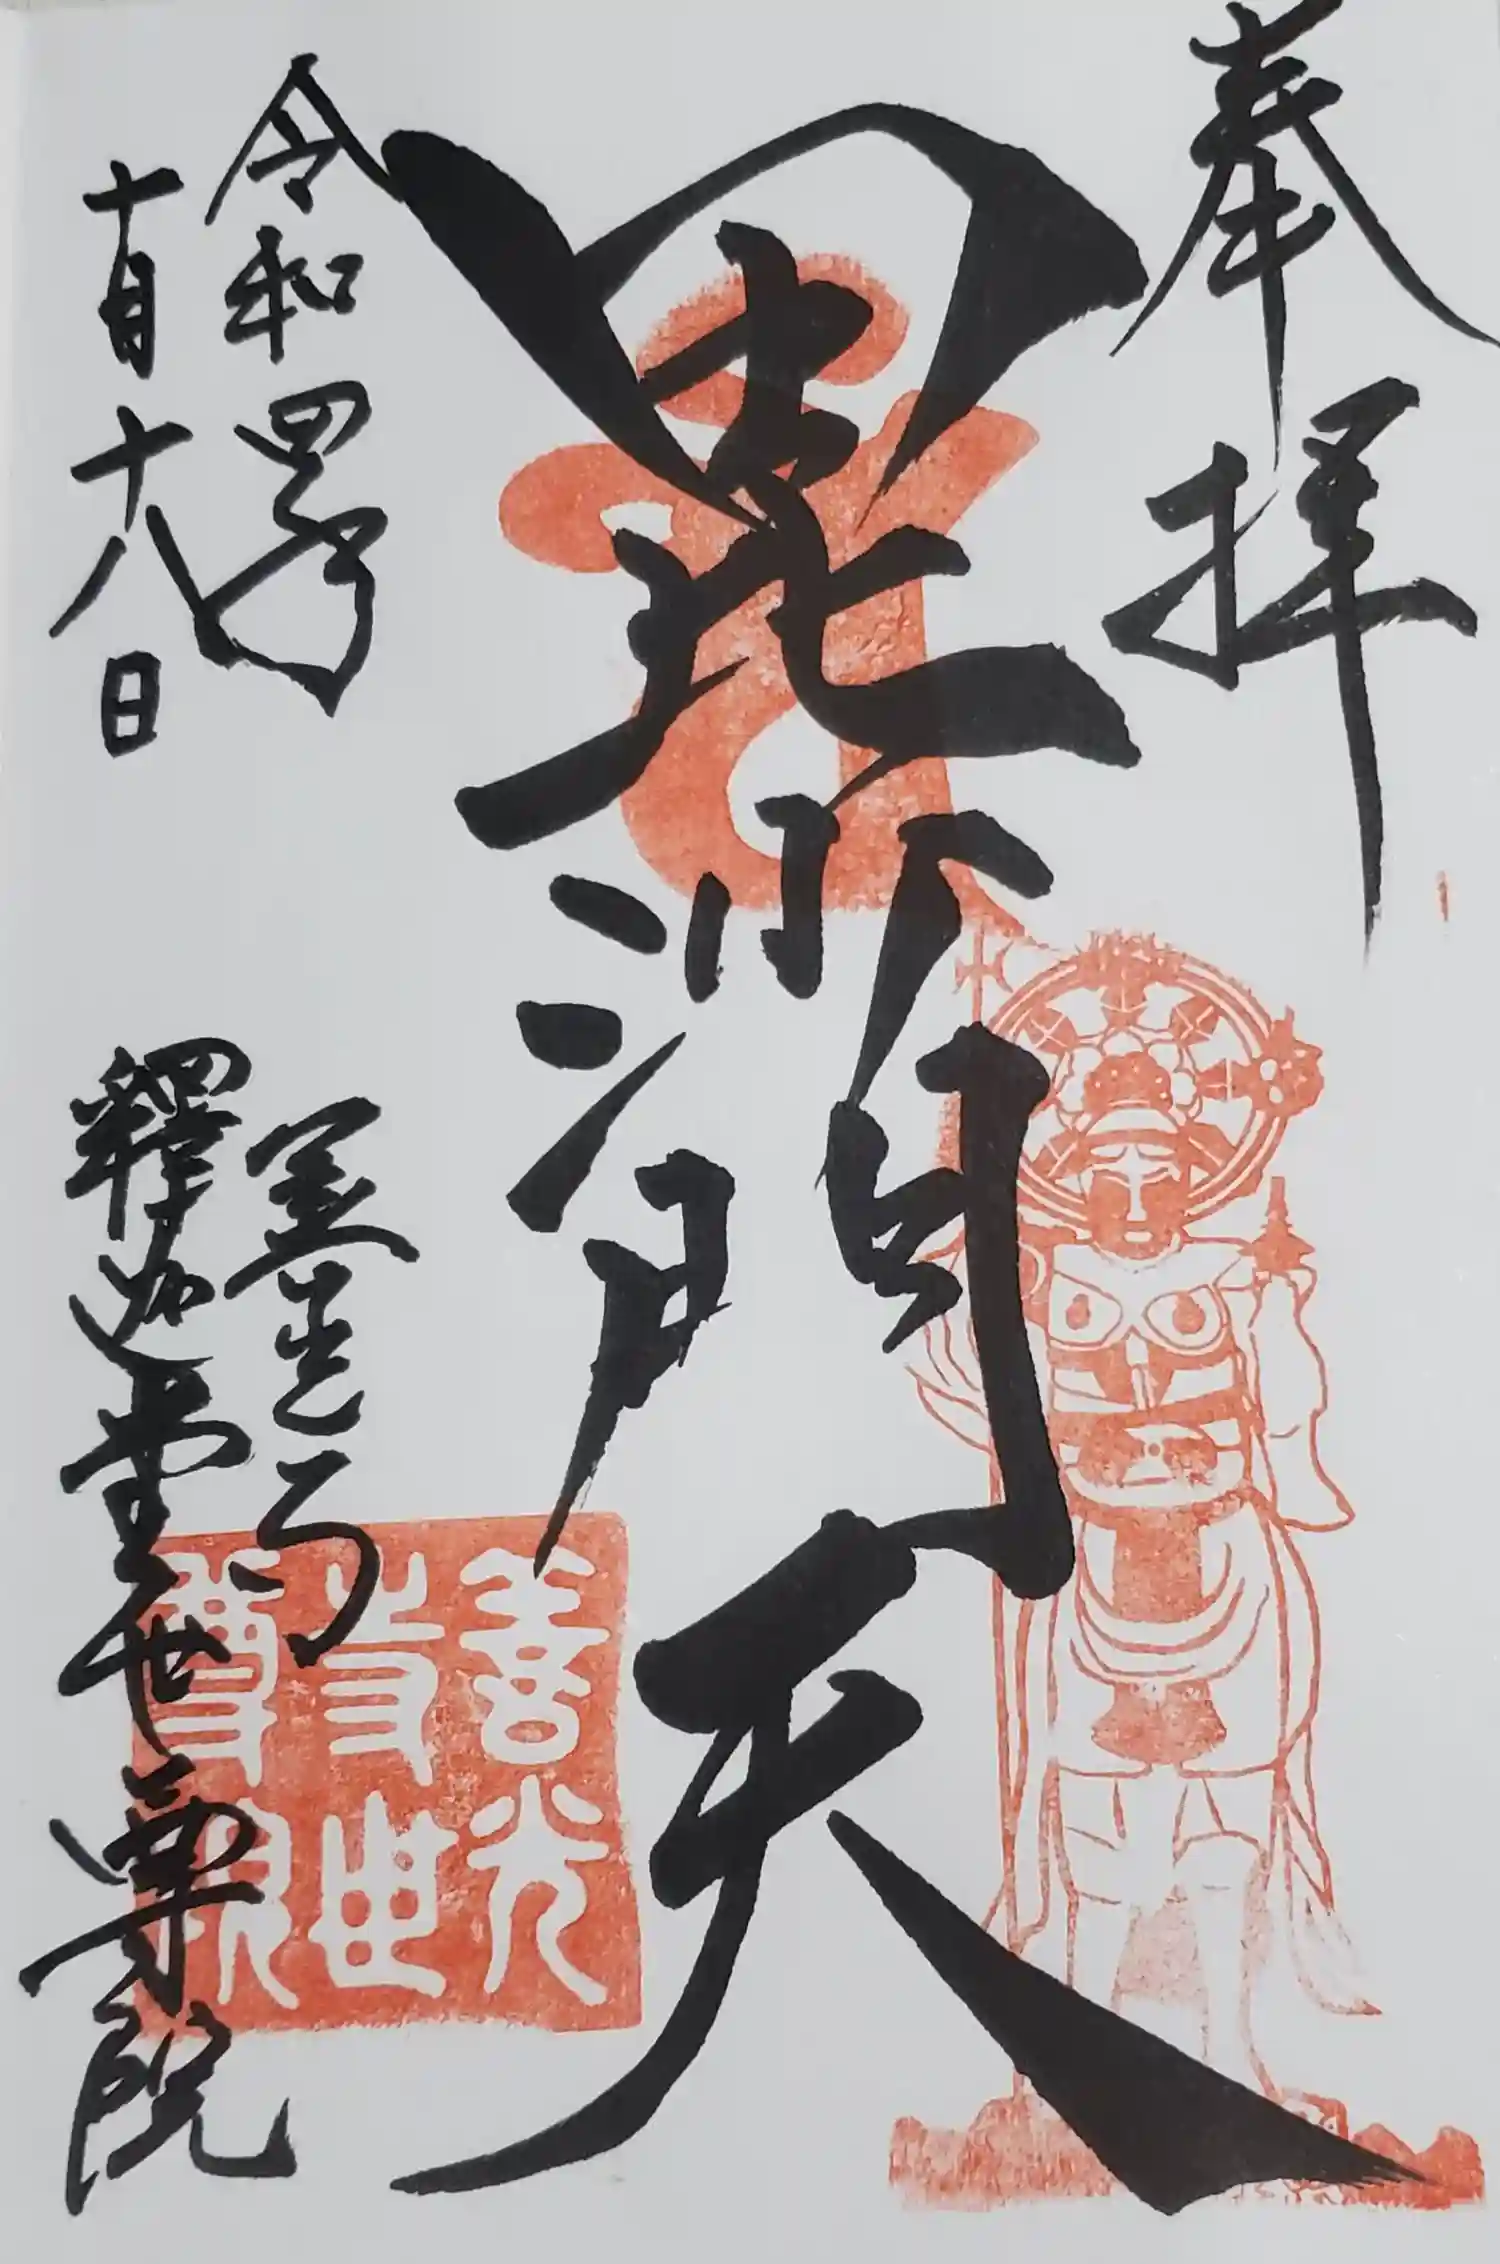 奉拝
毘沙門天
令和四年
十月十八日
善光寺
釋迦堂世尊院
善光
寺世
尊院